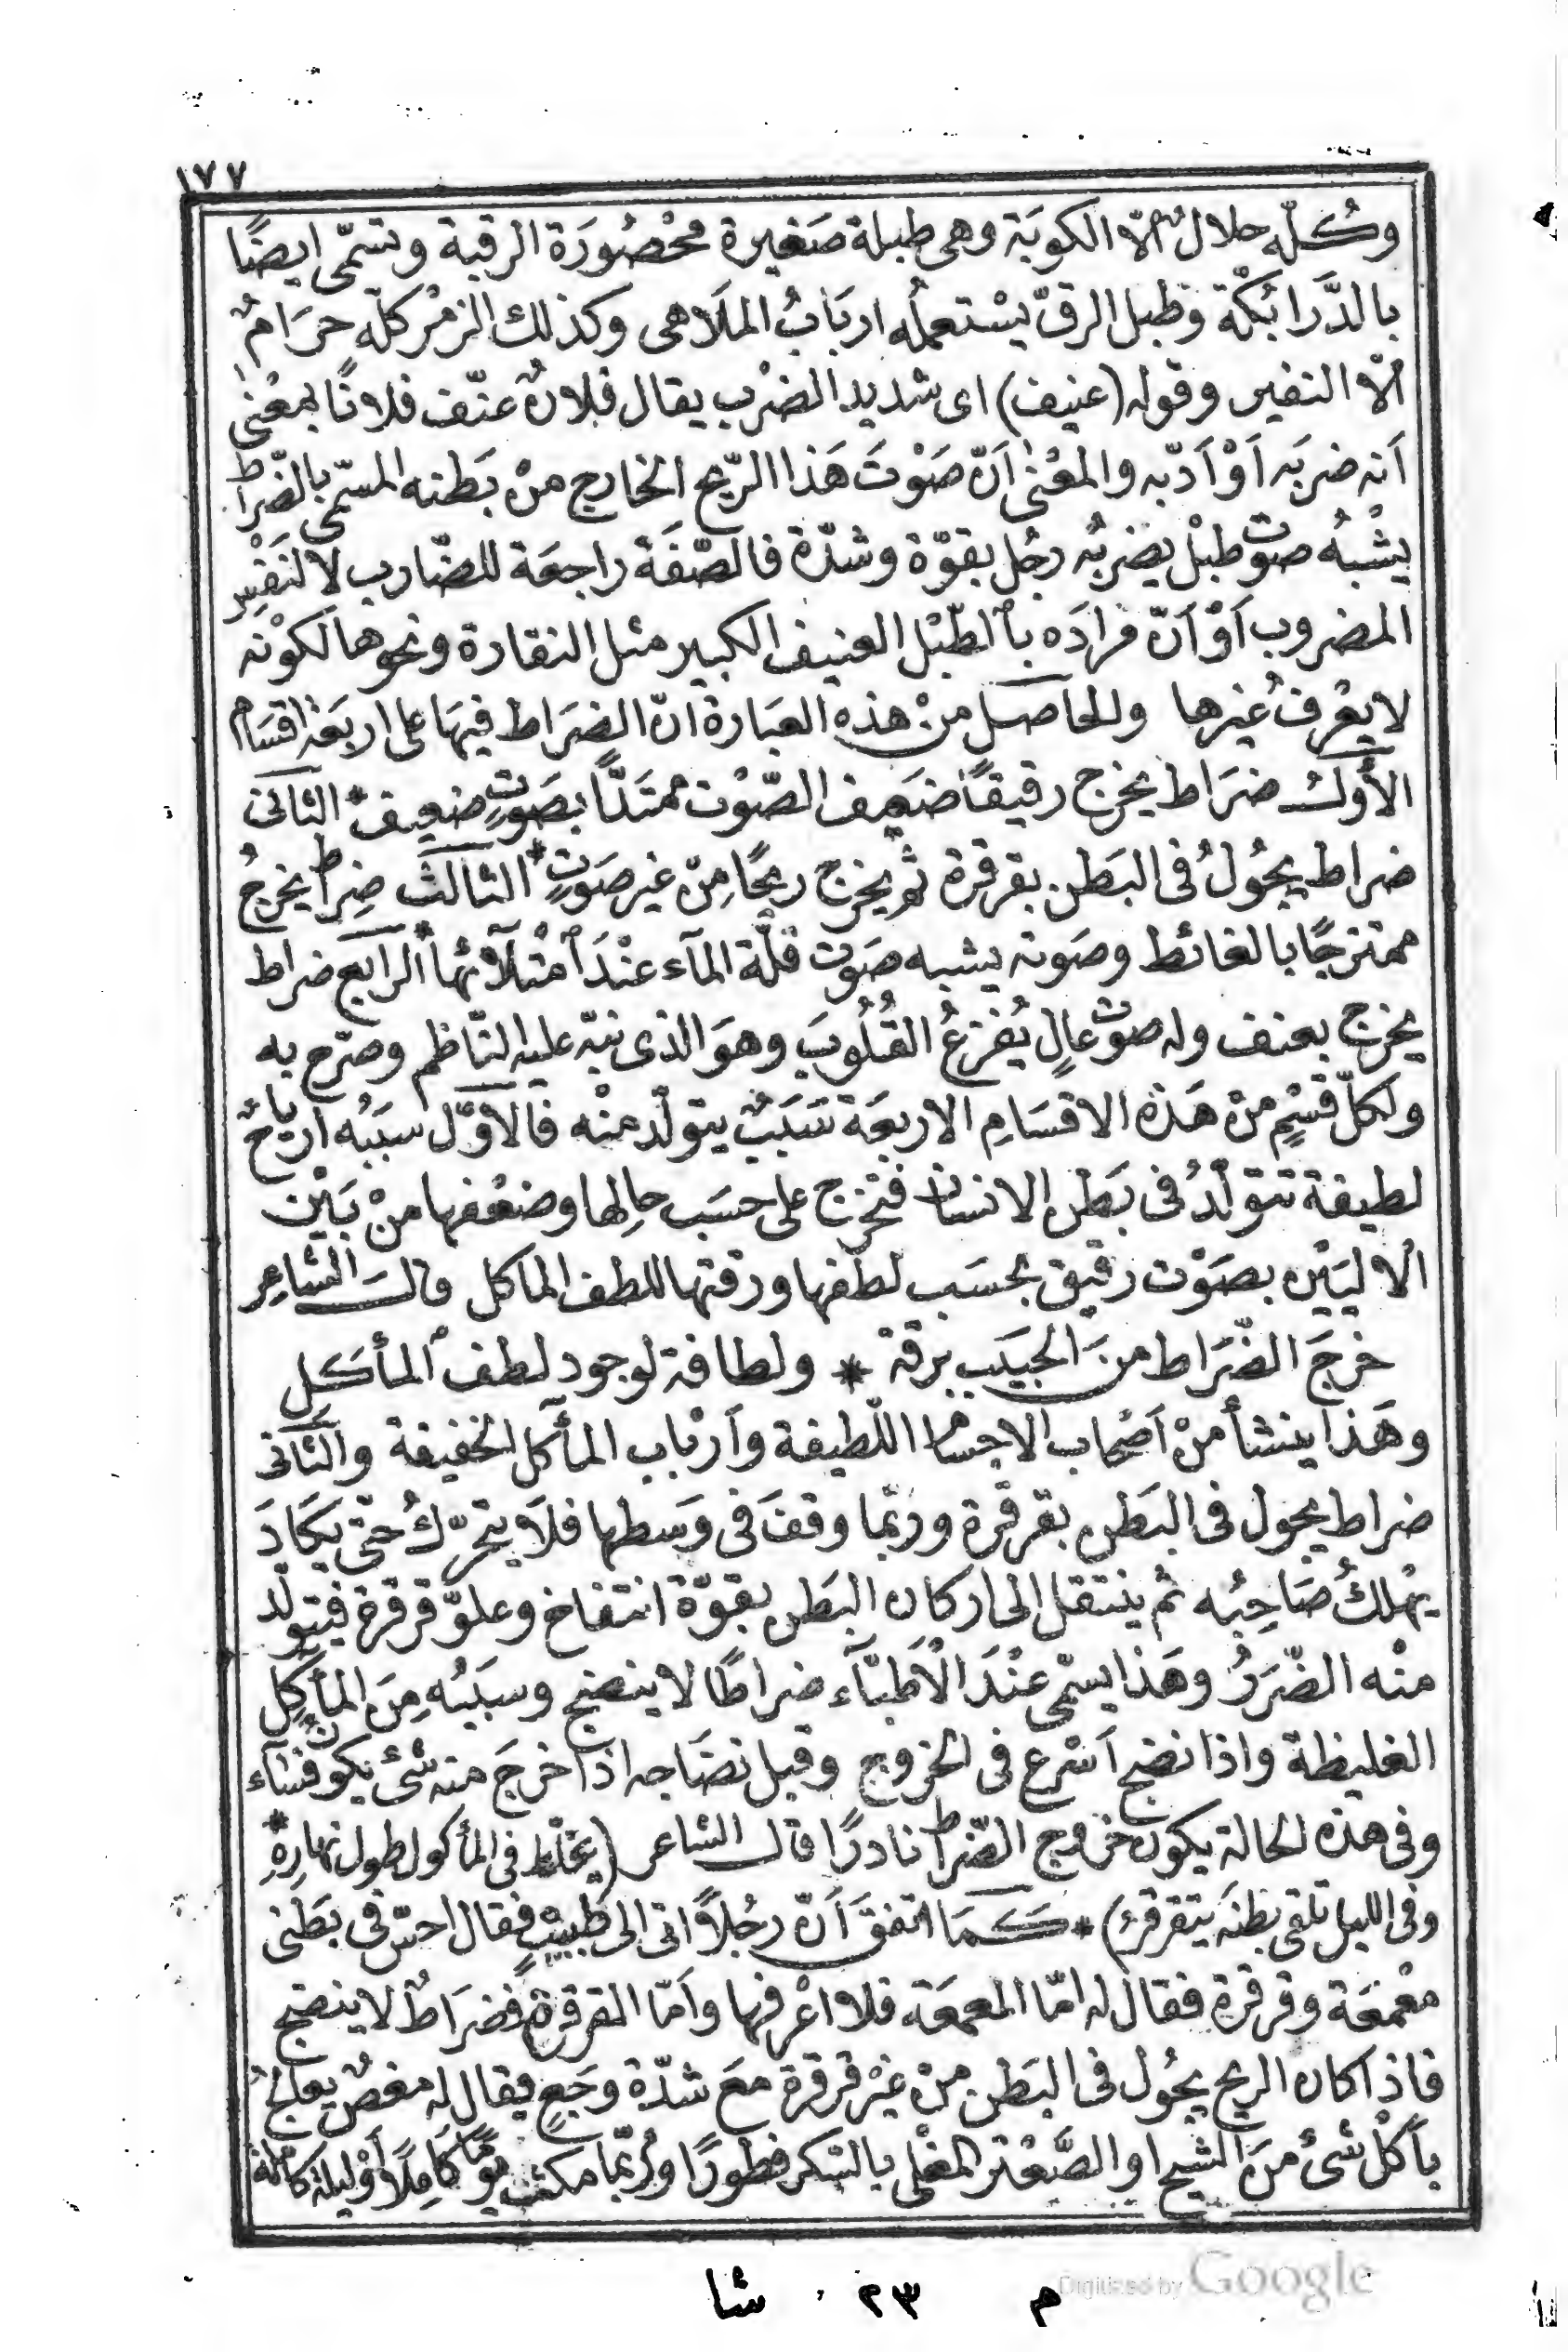 ١٧٧
وكُلّه حلالٌ الّا الكوبَة وهى طبلة صَغيرة محْصُورَة الرقبة وتسَمّى ايضًا
بالدَّرابُكّة وطبل الرقّ يسْتعملُه اربَابُ الملَاهى وكذلك الزمْر كلّه حرَامٌ
الّا النفير وقوله (عنيف) اى شديد الضرْب يقال فلانٌ عنّف فلانًا بمعْنى
اَنه ضربَه اَوْ اَدّبه والمعْنى اَنّ صَوْتَ هَذا الرّيح الخارج منْ بَطنه المسَمّى بالضّراط
يشْبهُ صوت طبْل يضربُه رجُل بقوّة وشدّة فالصّفَة راجعَة للضّارب لا لنَفْسِ
المضروب اَوْ اَنّ مرادَه بالطّبْل العنيف الكبير مثل النقارة ونحوها لكوْنه
لا يعْرف غيْرها والحاصل منْ هذه العبَارة انّ الضرَاط فيهَا على اربَعَة اقسَام
الأوّل ضرَاط يخرج رقيقًا ضَعيف الصّوْت ممتَدًّا بصَوتٍ ضعيف * الثانى
ضراط يجُولُ فى البَطن بقرقرة ثم يخرج ريحًا مِنْ غير صَوتٍ * الثالث ضِراط يخرجُ
ممتزجًا بالغائط وصَوته يشبه صَوت قلّة المآء عنْدَ امْتلآئها * الرابع ضراط
يخرج بعنف وله صوت عالٍ يُفزعُ القُلُوبَ وهوَ الذى نبّه عليه النّاظم وصرّح به
ولكلّ قسْمٍ منْ هَذه الاقسَامِ الاربعَة سَبَبٌ يتولّد منْه فالاوّل سببُه ارياحٌ
لطيفة تتولّدُ فى بَطن الانسان فتخرج على حسَب حالِها وضعْفها منْ بَيْن
الاليَيْن بصَوْت رقيق بحسَب لطفها ورقتها للطف الماكل قال الشاعر
خرجَ الضّرَاط منَ الحبيَب برقة * ولطافة لوجود لطف المأكل
وهَذا ينشأ منْ اَصْحاب الاجسام اللّطيفة واَرْباب المآكل الخفيفة والثّانى
ضراط يجول فى البَطن بقرقرة وربّما وقفَ فى وَسطها فلَا يتحرّكُ حتّى يكَادَ
يهْلكُ صَاحِبُه ثم ينتقل الى اركان البَطن بقوّة انتفاخ وعلوّ قرقرة فيتولّد
منْه الضّرَرُ وهَذا يسَمّى عنْدَ الْاَطبّآء ضراطًا لا ينضج وسبَبُه مِنَ المأكِل
الغليظة واذا نضج اَسْرع فى الخروج وقبل نضَاجه اذا خرجَ منه شئ يكون فسَآء
وفى هذه الحالة يكون خروج الضّراط نادرًا قال الشاعر (يخلّط فى المأكول طول نهارِهِ *
وفى الليل تلقى بطنَه يتقرقرُ) * كمَا اتفقَ اَنّ رجُلًا اتى الى طبيبٍ فقال احسّ فى بَطَنى
معْمعَة وقرقرة فقال له امّا المعمعَة فلا اعْرفها واَمّا القرقرة فضرَاطٌ لا ينضج
فاذا كان الريح يجُول فى البَطن منْ غيْر قرقرة معَ شدّة وجَعٍ فيقال له مغصٌ يعالجُ
باَكْل شئ منَ الشيح او الصَّعْتر المغْلى بالسّكر فطورًا ورُبّما مكثَ يومًا كامِلًا اَوْ ليلة كاملة
م ٢٣ شا
Digitized by Google